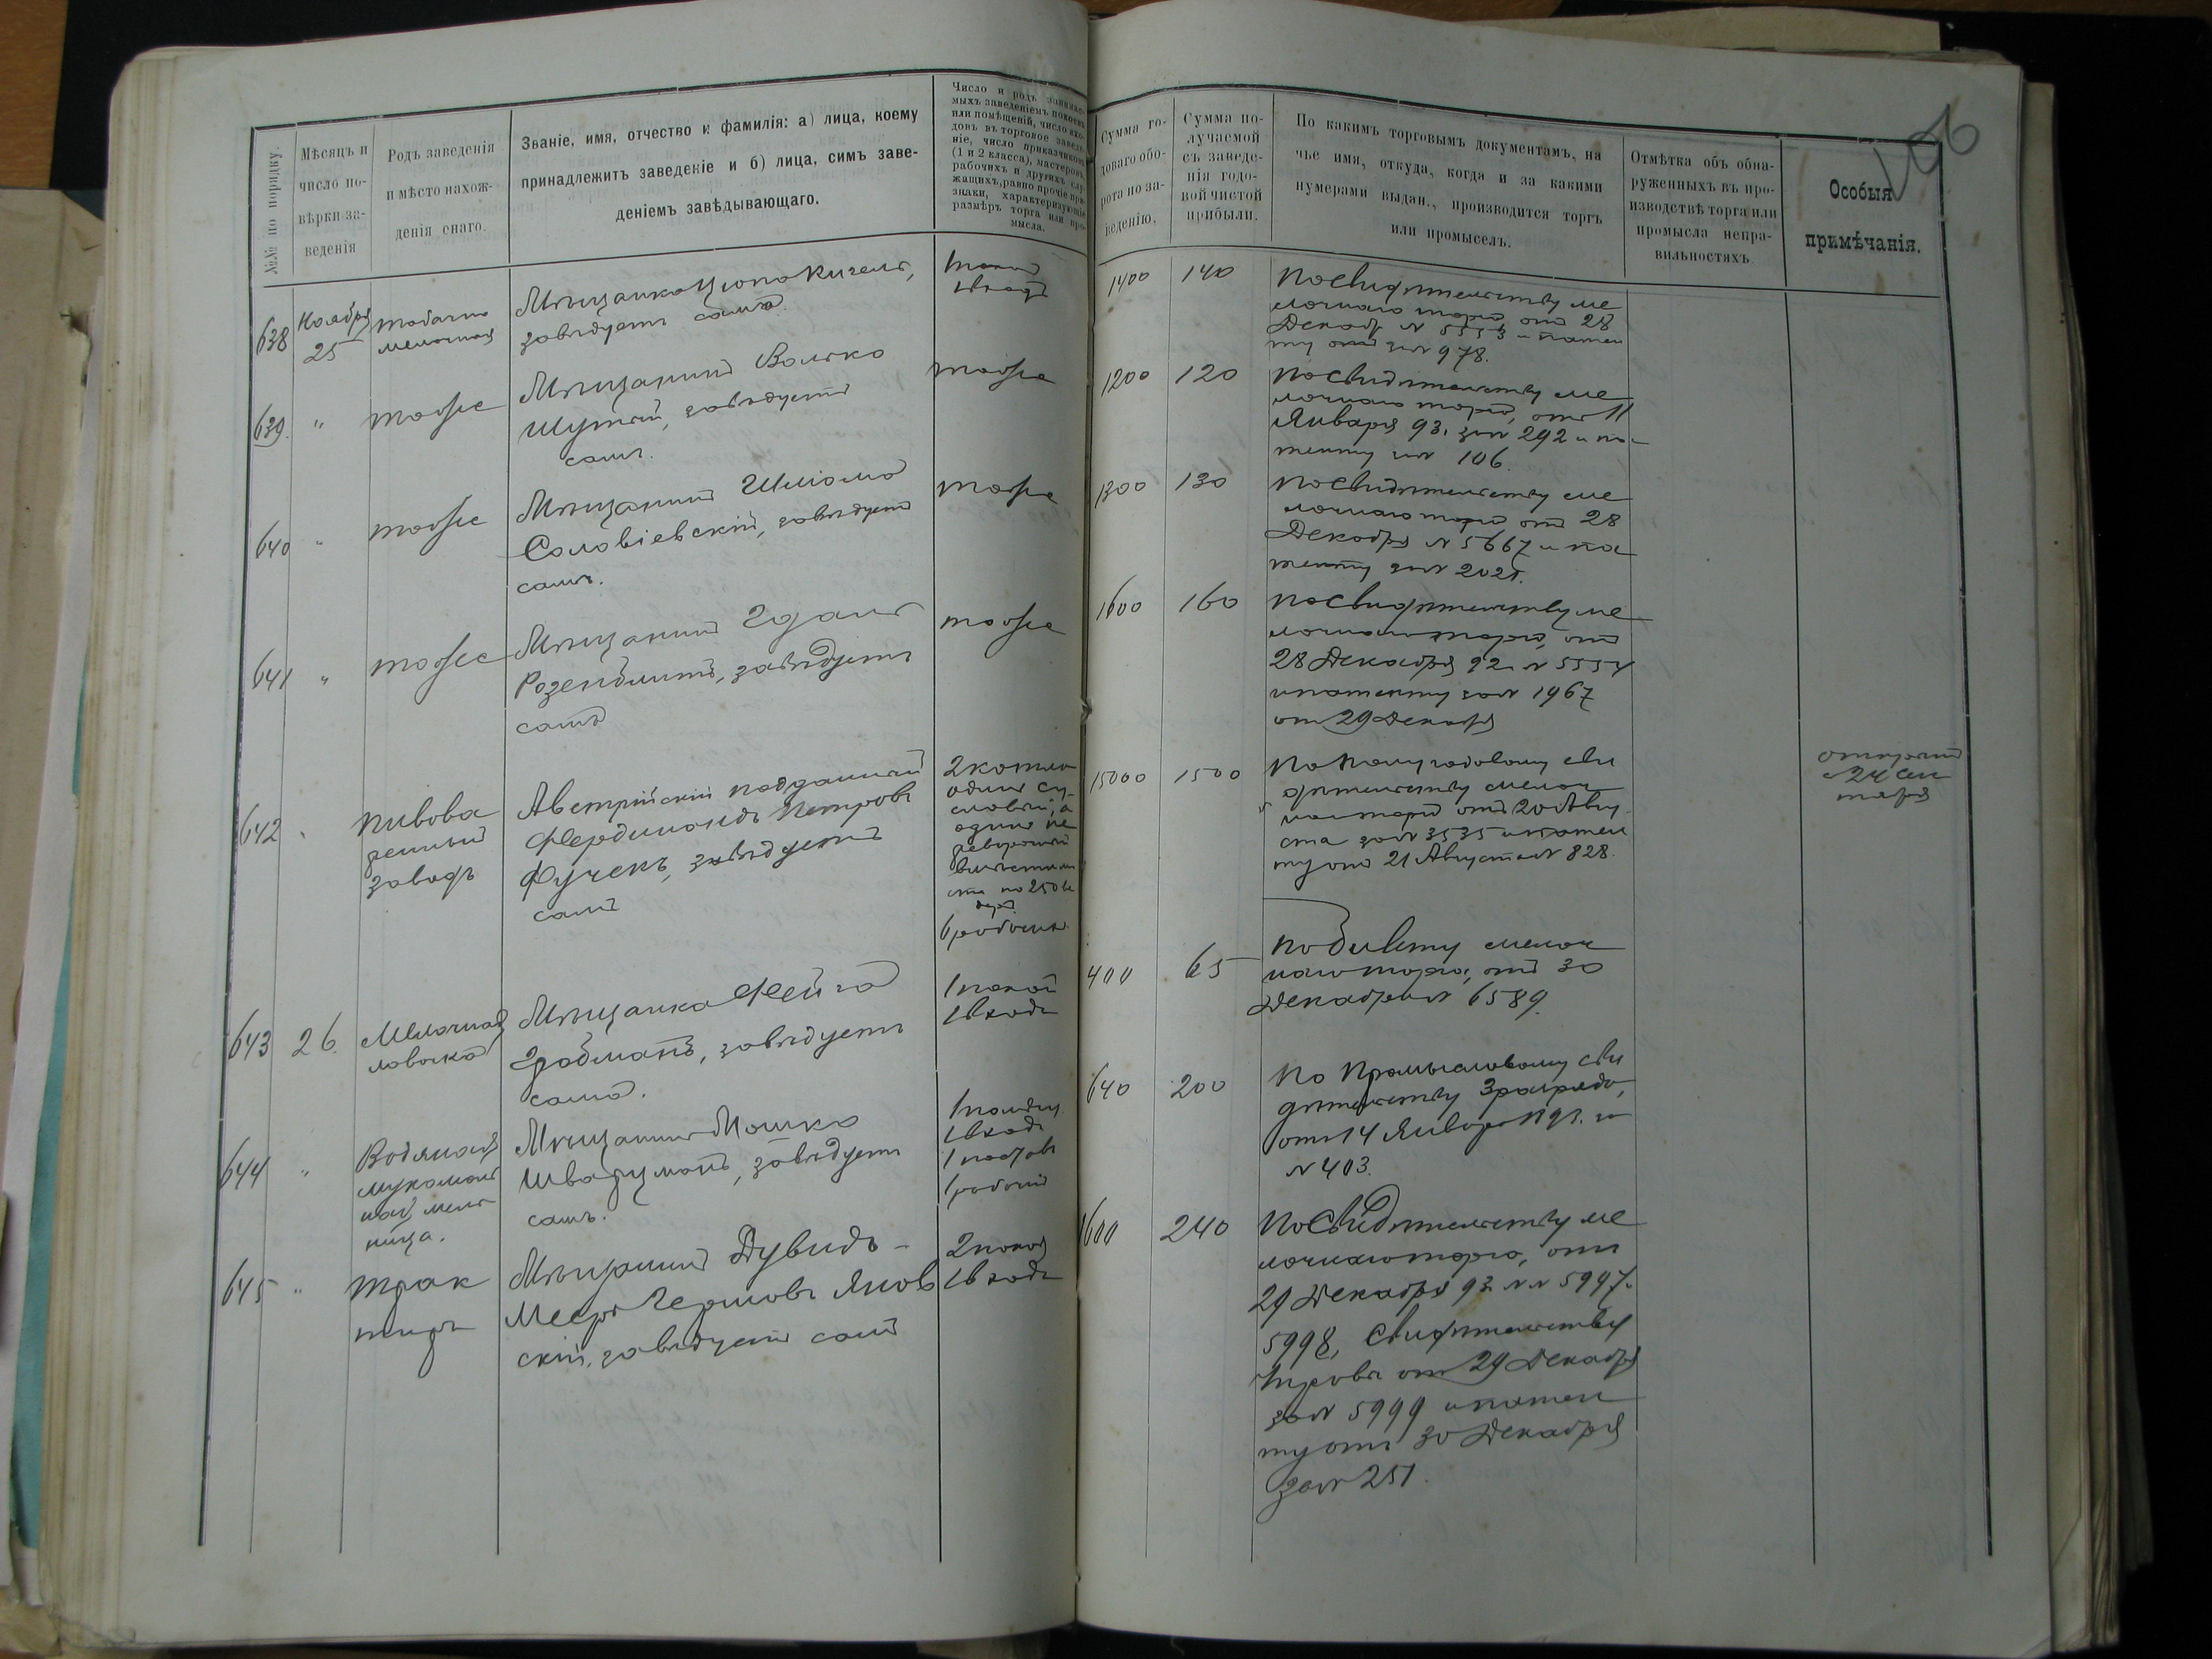 106
№№ по порядку.
Мѣсяцъ и
число по-
вѣрки за-
веденія
Родъ заведенія
и мѣсто нахож-
денія онаго.
Званіе, имя, отчество и фамилія: а) лица, коему
принадлежитъ заведеніе и б) лица, симъ заве-
деніемъ завѣдывающаго.
Число и родъ занимае-
мыхъ заведеніемъ покоевъ
или помѣщеній, число вхо-
довъ въ торговое заведе-
ніе, число приказчиковъ
(1 и 2 класса), мастеровъ,
рабочихъ и другихъ слу-
жащихъ, равно прочіе при-
знаки, характеризующіе
размѣръ торга или про-
мысла.
Сумма го-
доваго обо-
рота по за-
веденію.
Сумма по-
лучаемой
съ заведе-
нія годо-
вой чистой
прибыли.
По какимъ торговымъ документамъ, на
чье имя, откуда, когда и за какими
нумерами выдан., производится торгъ
или промыселъ.
Отмѣтка объ обна-
руженныхъ въ про-
изводствѣ торга или
промысла непра-
вильностяхъ.
Особыя
примѣчанія.
638
Ноября
25
табачно
мелочная
Мѣщанка Ципа Кигель,
завѣдуетъ сама.
1 покой
1 входъ
1400
140
По свидѣтельству ме
лочнаго торга отъ 28
Декаб. № 5553 и патен
ту отъ за № 978.
639.
"
тоже
Мѣщанинъ Волько
Шутый, завѣдуетъ
самъ.
тоже
1200
120
По свидѣтельству ме
лочнаго торга, отъ 11
Января 93. за № 292 и па-
тенту за № 106.
640
"
тоже
Мѣщанинъ Шліома
Соловіевскій, завѣдуетъ
самъ.
тоже
1300
130
По свидѣтельству ме
лочнаго торга отъ 28
Декабря № 5667 и па
тенту за № 2021.
641
"
тоже
Мѣщанинъ
Розенблитъ, завѣдуетъ
самъ
тоже
1600
160
По свидѣтельству ме
лочнаго торга, отъ
28 Декабря 92 № 5554
и патенту за № 1967
от 29 Декабря
642
"
Пивова
ренный
заводъ
Австрійскій подданный
Фердинандъ Петровъ
Фучекъ, завѣдуетъ
самъ
2 котла
одинъ су
словый, а
одинъ пе
реварный
вмѣстимо
сти по 250 ве
деръ
6 рабочих.
15000
1500
По полугодовому сви
дѣтельству мелоч
наго торга отъ 20 Авгу
ста за № 3535 и патен
ту отъ 21 Августа № 828.
открытъ
с 24 Сен
тября
643
26.
Мелочная
лавочка
Мѣщанка Фейга
Гробманъ, завѣдуетъ
сама.
1 покой
1 входъ
400
65
По билету мелоч
наго торга, отъ 30
Декабря № 6589.
644
"
Водяная
мукомоль
ная мель
ница.
Мѣщанинъ Мошко
Шварцманъ, завѣдуетъ
самъ.
1 входъ
1 поставъ
1 рабочій
640
200
По Промысловому сви
дѣтельству 3 разряда,
отъ 14 Января 1893. за
№ 403.
645
"
Трак
тиръ
Мѣщанинъ Дувидъ-
Мееръ Гершовъ Янов
скій, завѣдуетъ самъ
2 покоя
1 входъ
1600
240
По Свидѣтельству ме
лочнаго торга, отъ
29 Декабря 93 № № 5997 и
5998, Свидѣтельству
от 29 Декабря
за № 5999 и патен
ту отъ 30 Декабря
за № 251.